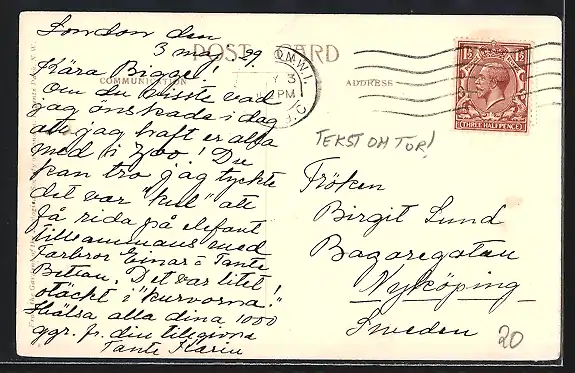 London den
3 maj 29.
POST CARD
Kära Bigge!
COMMUNICATION
ADDRESS
Om du visste vad
jag önskade i dag
att jag haft er alla
med i Zoo! Du
kan tro jag tyckte
det var "kul" att
få rida på elefant
tillsammans med
Farbror Einar o Tante
Bettan. Det var litet
otäckt i "kurvorna!"
Hälsa alla dina 1000
ggr. fr. din tillgivna
Tante Karin
3
PM
THREE HALF PENCE
TEKST OM TUR!
Fröken
Birgit Lund
Bagaregatan
Nyköping
Sweden
20